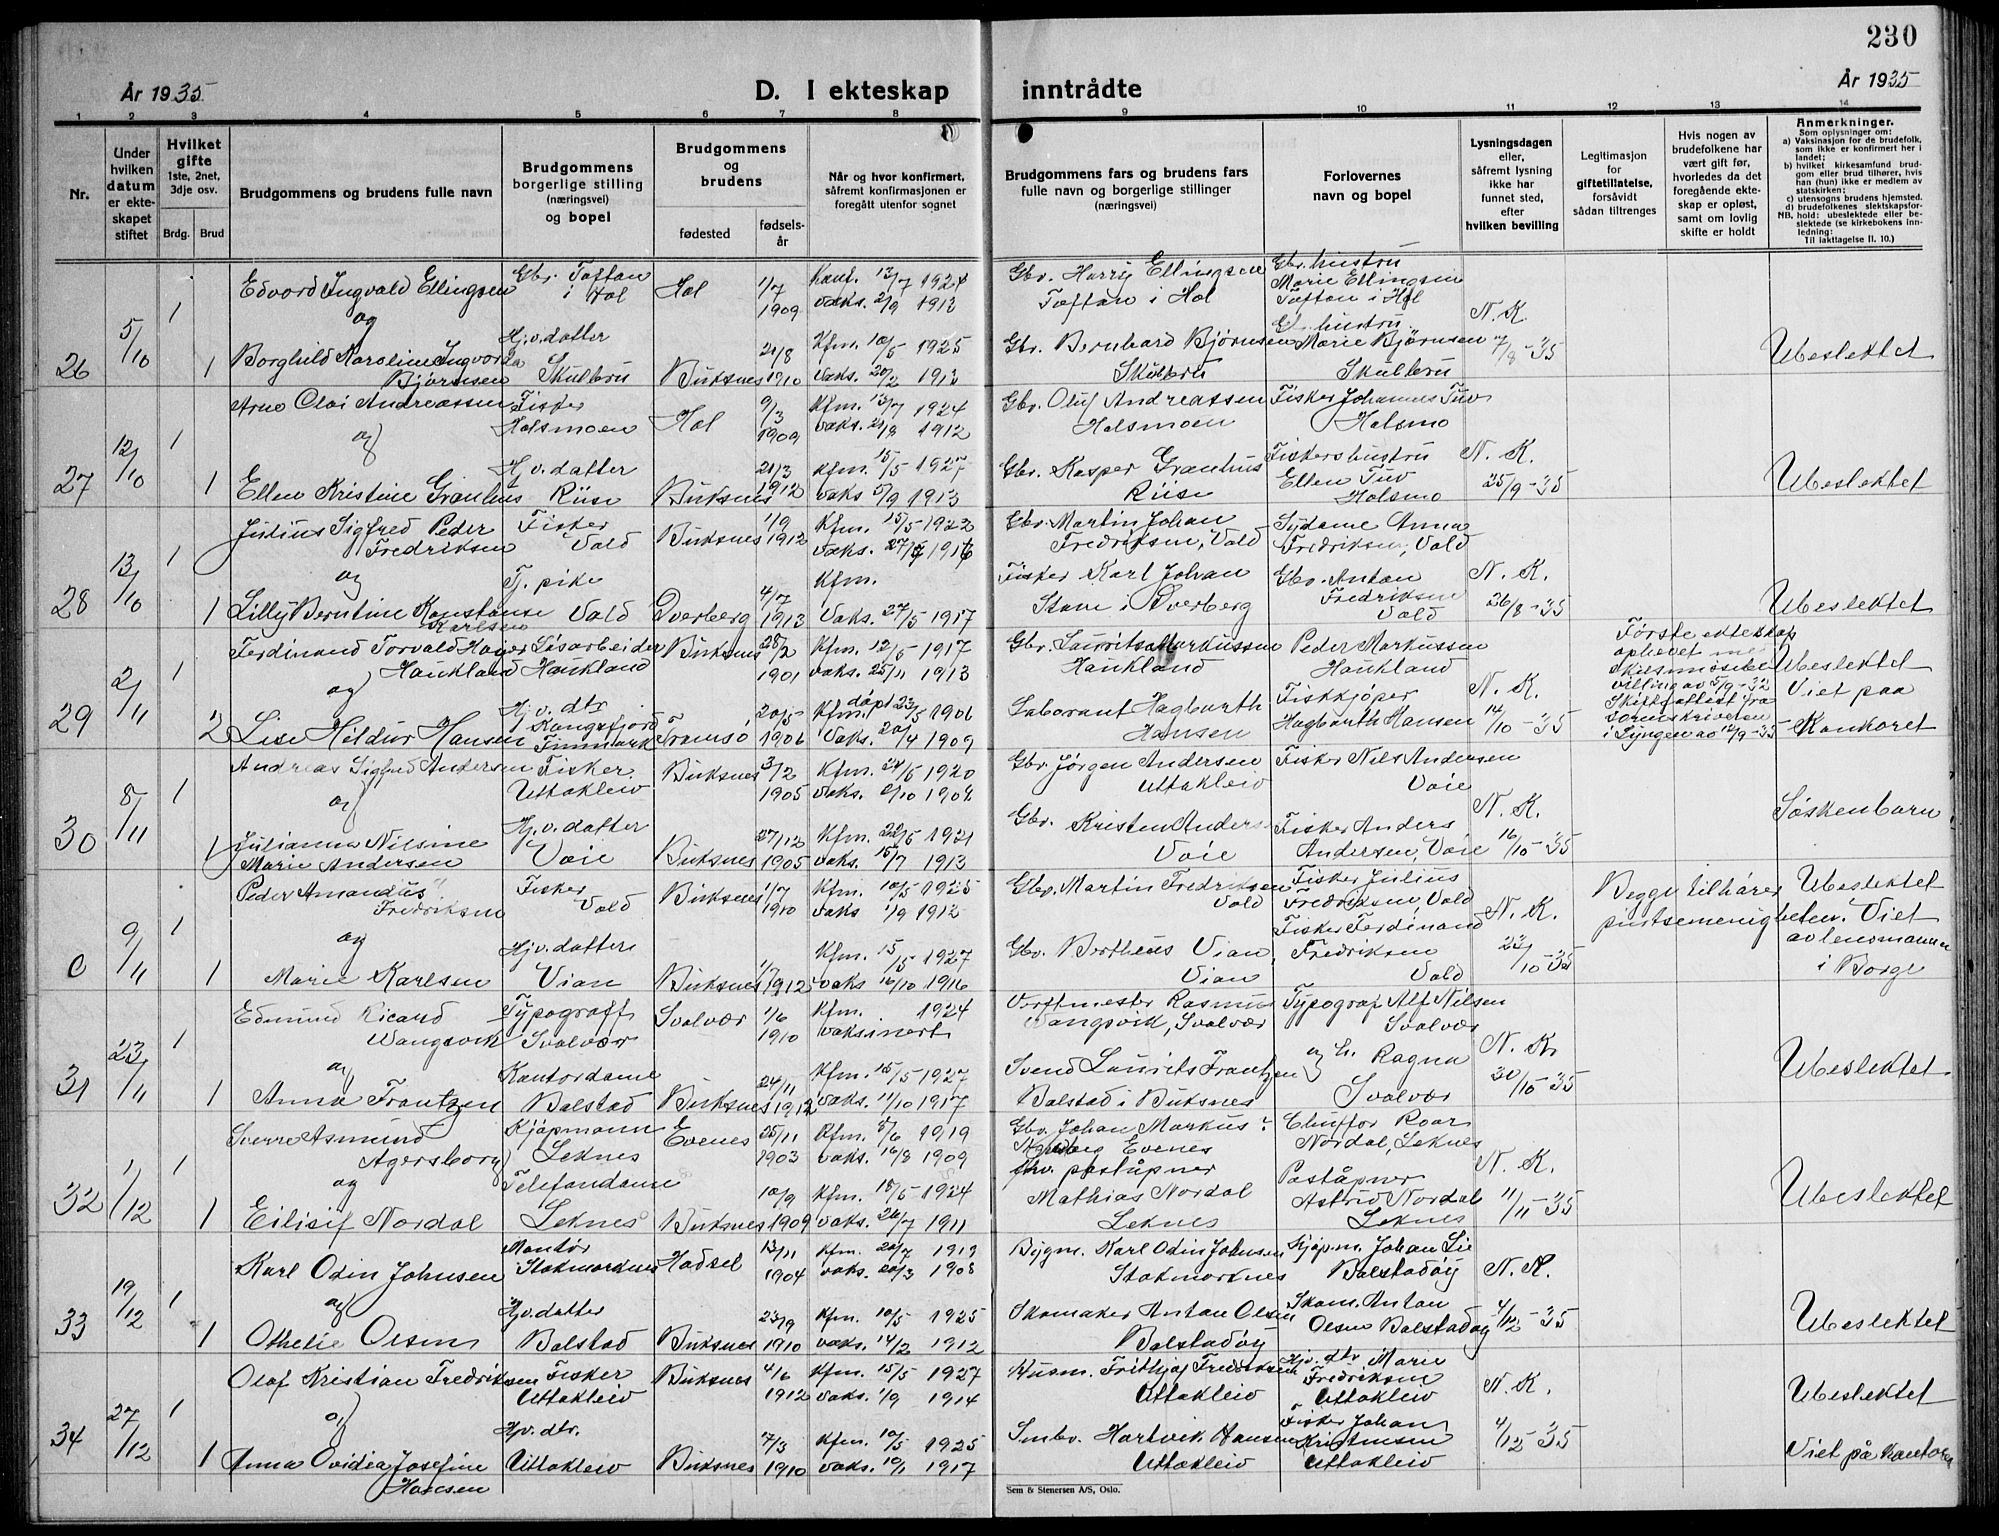 230
År 1935
D. I ekteskap inntrådte
År 1935
1 2 3 4 5 6 7 8 9 10 11 12 13 14
Nr.
Under hvilken datum er ekteskapet stiftet
Hvilket gifte 1ste, 2net, 3dje osv.
Brdg. Brud
Brudgommens og brudens fulle navn
Brudgommens borgerlige stilling (næringsvei) og bopel
Brudgommens og brudens
fødested fødselsår
Når og hvor konfirmert, såfremt konfirmasjonen er foregått utenfor sognet
Brudgommens fars og brudens fars fulle navn og borgerlige stillinger (næringsvei)
Forlovernes navn og bopel
Lysningsdagen eller, såfremt lysning ikke har funnet sted, efter hvilken bevilling
Legitimasjon for giftetillatelse, forsåvidt sådan tiltrenges
Hvis nogen av brudefolkene har vært gift før, hvorledes da det foregående ekteskap er opløst, samt om lovlig skifte er holdt
Anmerkninger.
Som oplysninger om:
a) Vaksinasjon for de brudefolk, som ikke er konfirmert her i landet;
b) hvilket kirkesamfund brudgom eller brud tilhører, hvis han (hun) ikke er medlem av statskirken;
c) utensogns brudens hjemsted.
d) brudefolkenes slektskapsforhold: ubeslektede eller beslektede (se kirkebokens innledning:
NB.
Til iakttagelse II. 10.)
26 5/10 1 Edvard Ingvald Ellingsen Gbr. Toftan i Hol Hol 1/7 1909 Konf. 13/7 1924 vaks. 2/9 1913 Gbr. Harry Ellingsen Tøftan i Hol Gbr. hustru Marie Ellingsen Toftan i Hol
og
1 Borghild Karoline Ingvorda Bjørnsen Hj.v. datter Skulbru Buksnes 21/8 1910 Kfm. 10/5 1925 Vaks. 20/2 1913 Gbr. Bernhard Bjørnsen Skulbru Gb. hustru Marie Bjørnsen Skulbru N. K. 7/8-35 Ubeslektet
27 12/10 1 Arne Olai Andreassen Fisker Holsmoen Hol 9/3 1909 Kfm. 13/7 1924 vaks. 21/8 1912 Gbr. Oluf Andreassen Holsmoen Fisker Johannes Tuv Holsmo
og
1 Ellen Kristine Granhus Hj.v. datter Riise Buksnes 21/3 1912 Kfm. 15/5 1927 vaks 5/9 1913 Gbr. Kasper Granhus Riise Fiskers hustru Ellen Tuv Holsmo N. K. 25/9-35 Ubeslektet
28 13/10 1 Julius Sigfred Peder Fredriksen Fisker Vold Buksnes 1/9 1912 Kfm. 15/5 1923 Gbr. Martin Johan Fredriksen, Vold Sydame Anna Fredriksen, Vold
og
1 Lilly Berntine Konstanse Karlsen Tj. pike Vold Dverberg 4/7 1913 Kfm. Vaks. 27/5 1917 Fisker Karl Johan Stave i Dverberg Gbr. Anton Fredriksen Vold N. K. 26/8-35 Ubeslektet
29 2/11 1 Ferdinand Torvald Haukland Løsarbeider Haukland Buksnes 28/2 1901 Kfm. 12/5 1917 vaks. 25/11 1913 Gbr. Laurits Markussen Haukland Peder Markussen Haukland
og
2 Lise Hildur Hansen Hj.v. dtr Kongsfjord Finnmark Tromsø 20/5 1906 Kfm. døpt 23/5 1906 Vaks. 20/4 1909 Laborant Hagbarth Hansen Fiskkjøper Hagbarth Hansen N. K. 14/10-35 Første ekteskap ophevet med skilsmissebevilling av 5/9-32 Skifteattest fra sorenskriveren i Lyngen av 12/9-35 Ubeslektet Viet paa Kontoret
30 8/11 1 Andreas Sigfred Andersen Fisker Uttakleiv Buksnes 3/2 1905 Kfm. 24/5 1920 Gbr. Jørgen Andersen Uttakleiv Fisker Nils Andersen Voie
og
1 Julianna Nilsine Marie Andersen Hj.v. datter Voie Buksnes 27/12 1905 Kfm. 22/5 1921 vaks. 15/7 1913 Gbr. Kristen Anders Voie Fisker Anders Andersen, Voie N. K. 16/10-35 Søskenbarn
0 9/11 1 Peder Amandus Fredriksen Fisker Vold Buksnes 1/7 1910 Kfm. 10/5 1925 vaks 1/9 1912 Gbr. Martin Fredriksen Vold Fisker Julius Fredriksen, Vold
og
1 Marie Karlsen Hj.v. datter Vian Buksnes 1912 Kfm. 15/5 1927 vaks 16/10 1916 Gbr. Bertheus Vian Vian Fisker Ferdinand Fredriksen Vold N. K. 23/10-35 Begge tilhører pinsemenigheten. Ubeslektet Viet av lensmannen i Borge
31 23/11 1 Edmund Ricard Wangsvik Typograff Svolvær Svolvær 1/6 1910 Kfm. 1924 vaksinert Verftmester Rasmus Wangsvik, Svolvær Typograf Alf Nilsen Svolvær
og
1 Anna Frantzen Kontordame Balstad Buksnes 24/11 1912 Kfm. 15/5 1927 vaks. 11/10 1917 Svend Laurits Frantzen Balstad i Buksnes og h. Ragna Svolvær N. K. 30/10-35 Ubeslektet
32 1/12 1 Sverre Asmund Agersborg Kjøpmann Leknes Evenes 25/11 1903 Kfm. 5/6 1919 vaks. 16/8 1909 Gbr. Johan Markus Evenes Chuffør Roar Nordal, Leknes
og
1 Eilisif Nordal Telefondame Leknes Buksnes 10/9 1909 Kfm. 18/5 1924 vaks. 26/7 1911 fhv. poståpner Mathias Nordal Leknes Poståpner Astrid Nordal Leknes N. K. 11/11-35 Ubeslektet
33 19/12 1 Karl Odin Johnsen Montør Stokmarknes Hadsel 13/11 1904 Kfm. 20/7 1919 vaks. 20/3 1908 Bygm. Karl Odin Johnsen Stokmarknes Kjøpm. Johan Lie Balstadøy
og
1 Othelie Olsen Hj.v. datter Balstad Buksnes 23/9 1910 Kfm. 10/5 1925 vaks. 14/2 1912 Skomaker Anton Olsen Balstadøy Skom. Anton Olsen Balstadøy N. K. 4/12-35 Ubeslektet
34 27/12 1 Olaf Kristian Fredriksen Fisker Uttakleiv Buksnes 4/6 1912 Kfm. 15/5 1927 vaks. 1/9 1914 Husm. Frithjof Fredriksen Uttakleiv Hjv. dtr Marie Fredriksen Uttakleiv
og
1 Anna Ovidia Josefine Hansen Hjv. dtr. Uttakleiv Buksnes 7/3 1910 Kfm. 10/5 1925 vaks. 10/1 1917 Smbr. Hartvik Hansen Uttakleiv Fisker Johan Kristensen Uttakleiv N. K. 4/12-35 Ubeslektet Viet på kontoret
Sem & Stenersen A/S, Oslo.